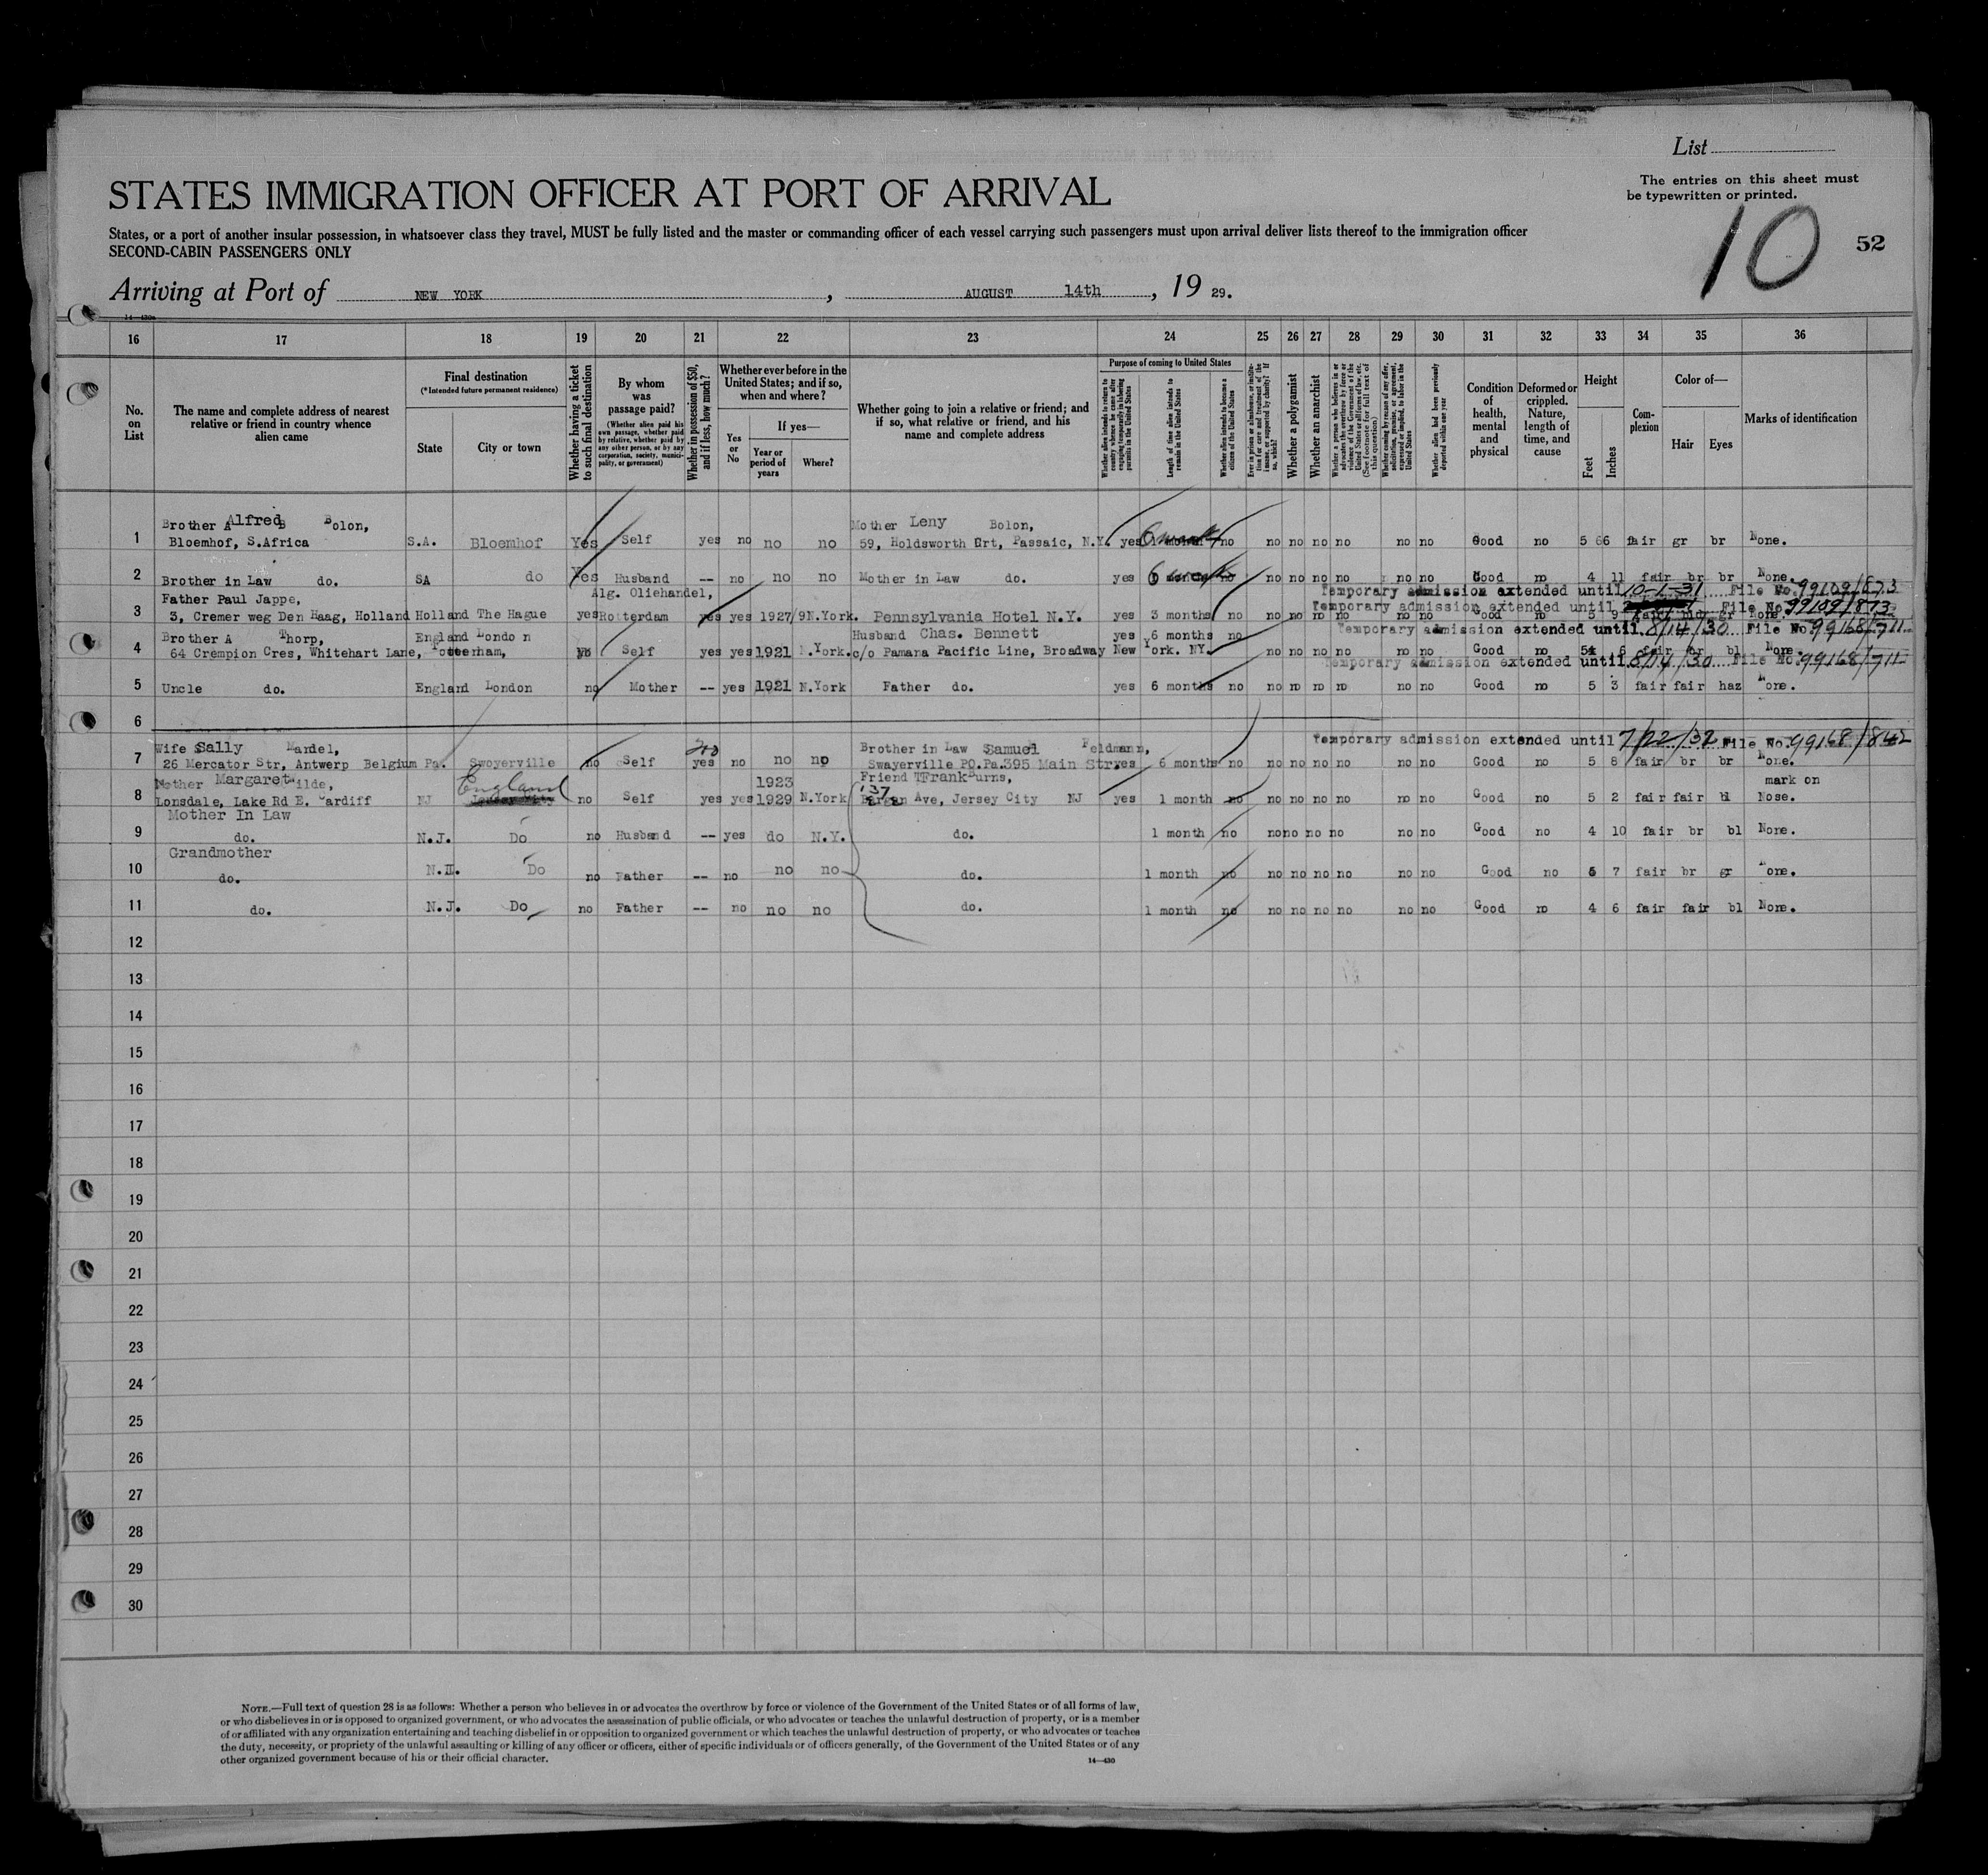 List
The entries on this sheet must
be typewritten or printed.
STATES IMMIGRATION OFFICER AT PORT OF ARRIVAL
10
52
States, or a port of another insular possession, in whatsoever class they travel, MUST be fully listed and the master or commanding officer of each vessel carrying such passengers must upon arrival deliver lists thereof to the immigration officer
SECOND-CABIN PASSENGERS ONLY
Arriving at Port of NEW YORK, AUGUST 14th, 19 29.
16 17 18 19 20 21 22 23 24 25 26 27 28 29 30 31 32 33 34 35 36
No. on List
The name and complete address of nearest relative or friend in country whence alien came
Final destination
(*Intended future permanent residence)
State
City or town
Whether having a ticket to such final destination
By whom was passage paid?
(Whether alien paid his own passage, whether paid by relative, whether paid by any other person, or by any corporation, society, municipality, or government)
Whether in possession of $50, and if less, how much?
Whether ever before in the United States; and if so, when and where?
Yes or No
If yes—
Year or period of years
Where?
Whether going to join a relative or friend; and if so, what relative or friend, and his name and complete address
Purpose of coming to United States
Whether alien intends to return to country whence he came after engaging temporarily in laboring pursuits in the United States
Length of time alien intends to remain in the United States
Whether alien intends to become a citizen of the United States
Whether a polygamist
Whether an anarchist
Whether alien had been previously deported within one year
Condition of health, mental and physical
Deformed or crippled. Nature, length of time, and cause
Height
Feet
Inches
Complexion
Color of—
Hair
Eyes
Marks of identification
1 Brother A Alfred Bolon, Mother Leny Bolon,
Bloemhof, S.Africa S.A. Bloemhof Yes Self yes no no no 59, Holdsworth Crt, Passaic, N.Y. yes no no no no no no no Good no 5 66 fair gr br None.
2 Brother in Law do. SA do Yes Husband -- no no no Mother in Law do. yes no no no no no no no Good no 4 11 fair br br None.
Father Paul Jappe, Alg. Oliehandel, Temporary admission extended until 10-1-31 File No. 99109/873
Temporary admission extended until File No. 99109/873
3 3, Cremer weg Den Haag, Holland Holland The Hague yes Rotterdam yes yes 1927/9 N.York. Pennsylvania Hotel N.Y. yes 3 months no no no no no no no Good no 5 9
Temporary admission extended until 8/14/30 File No. 99168/711
Brother A Thorp, England London Husband Chas. Bennett yes 6 months no
4 64 Crempion Cres, Whitehart Lane, Self yes yes 1921 N.York. c/o Pamana Pacific Line, Broadway New York. NY. no no no no no no Good no 5 6 fair br bl None.
Temporary admission extended until 8/14/30 File No. 99168/711
5 Uncle do. England London no Mother -- yes 1921 N.York Father do. yes 6 months no no no no no no no Good no 5 3 fair fair haz None.
6
Temporary admission extended until 7/22/32 File No. 99168/842
Wife Sally Mardel, Brother in Law Samuel Feldmann,
7 26 Mercator Str, Antwerp Belgium Pa. Swoyerville no Self yes no no no Swayerville PO.Pa. 395 Main Str. yes 6 months no no no no no no no Good no 5 8 fair br br None.
Mother Margaret Wilde, England 1923 Friend Frank Burns, mark on
8 Lonsdale, Lake Rd E. Cardiff NJ Jersey City no Self yes yes 1929 N.York 137 Bergen Ave, Jersey City NJ yes 1 month no no no no no no no Good no 5 2 fair fair bl Nose.
Mother In Law
9 do. N.J. Do no Husband -- yes do N.Y. do. 1 month no no no no no no no Good no 4 10 fair br bl None.
Grandmother
10 do. Do no Father -- no no no do. 1 month no no no no no no no Good no 5 7 fair br gr None.
11 do. N.J. Do no Father -- no no no do. 1 month no no no no no no no Good no 4 6 fair fair bl None.
12
13
14
15
16
17
18
19
20
21
22
23
24
25
26
27
28
29
30
NOTE.—Full text of question 28 is as follows: Whether a person who believes in or advocates the overthrow by force or violence of the Government of the United States or of all forms of law,
or who disbelieves in or is opposed to organized government, or who advocates the assassination of public officials, or who advocates or teaches the unlawful destruction of property, or is a member
of or affiliated with any organization entertaining and teaching disbelief in or opposition to organized government or which teaches the unlawful destruction of property, or who advocates or teaches
the duty, necessity, or propriety of the unlawful assaulting or killing of any officer or officers, either of specific individuals or of officers generally, of the Government of the United States or of any
other organized government because of his or their official character.
14—430